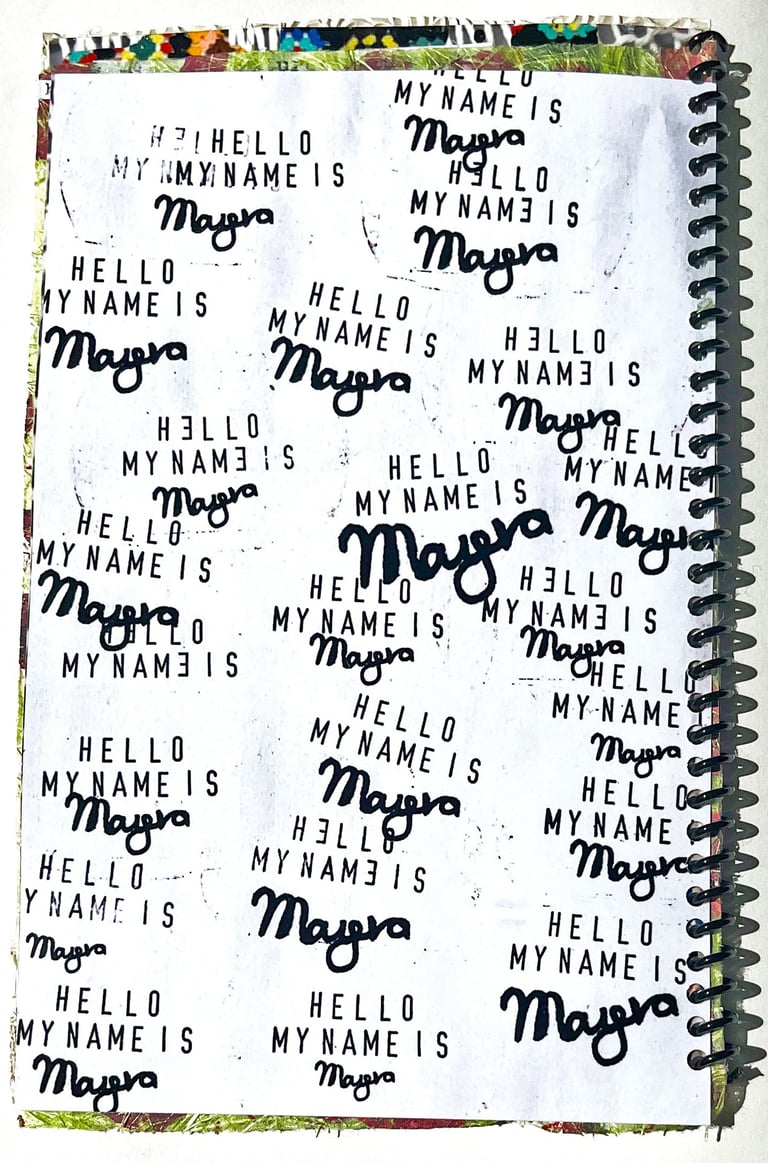 HELLO
MY NAME IS
Mayera
HELLO
MY NAME IS
Mayera
HƎLLO
MY NAMƎ IS
Mayera
HELLO
MY NAME IS
Mayera
HELLO
MY NAME IS
Mayera
HƎLLO
MY NAMƎ IS
Mayera
HƎLLO
MY NAMƎ IS
Mayera
HELLO
MY NAME IS
Mayera
HELL
MY NAME
Mayera
HELLO
MY NAME IS
Mayera
HELLO
MY NAME IS
Mayera
HƎLLO
MY NAMƎ IS
Mayera
HƎLLO
MY NAMƎ IS
HELLO
MY NAME
Mayera
HELLO
MY NAME IS
Mayera
HELLO
MY NAME IS
Mayera
HELLO
MY NAME
Mayera
HƎLLO
MY NAMƎ IS
Mayera
HELLO
Y NAME IS
Mayera
HELLO
MY NAME IS
Mayera
HELLO
MY NAME IS
Mayera
HELLO
MY NAME IS
Mayera